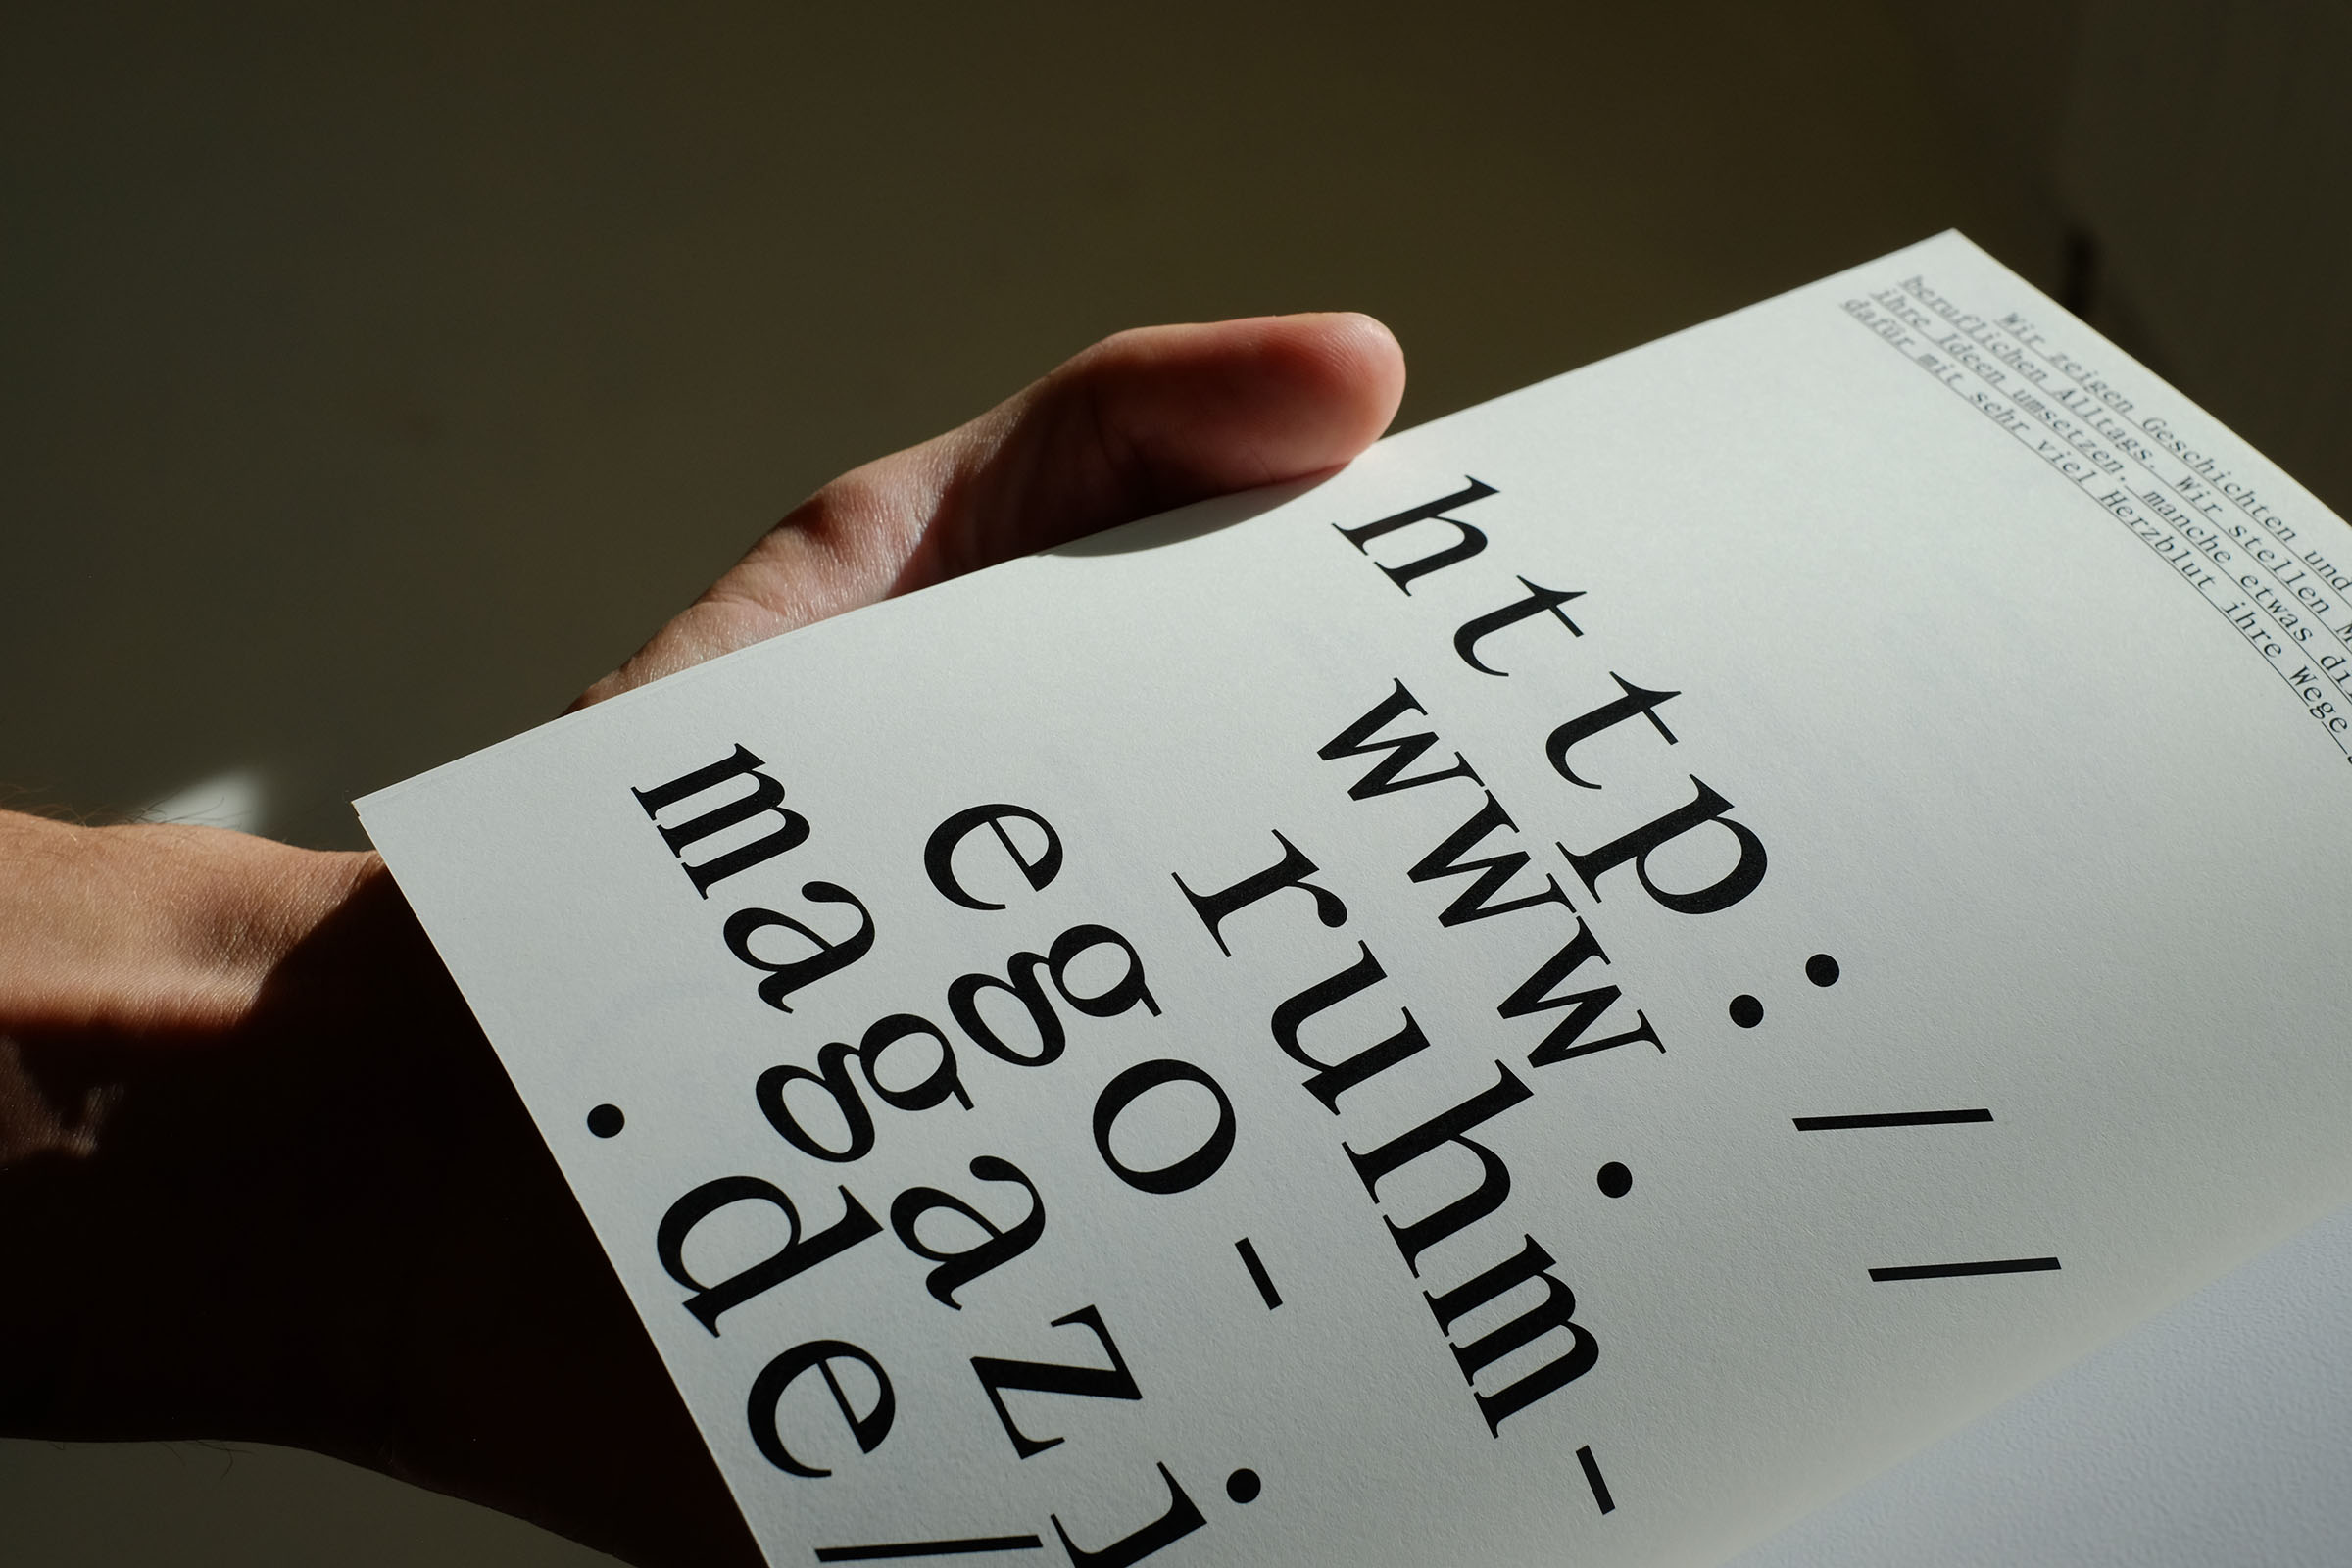 Wir zeigen Geschichten und
beruflichen Alltags. Wir stellen
ihre Ideen umsetzen, manche etwas
dafür mit sehr viel Herzblut ihre Wege
http://
www.
ruhm-
ego-
magazi
.de/